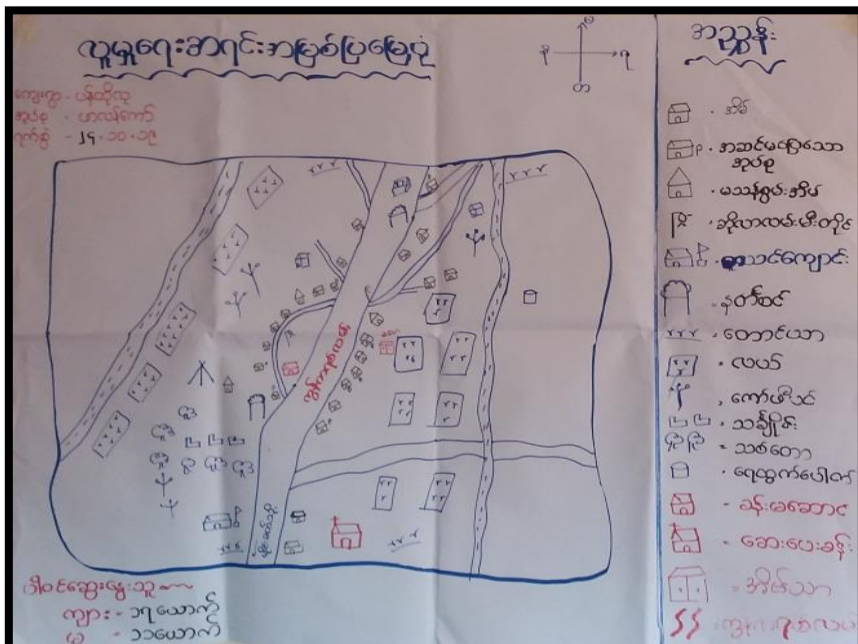 လူမှုရေးဆရင်းအမြစ်ပြမြေပုံ
ကျေးရွာ - ပန်ထိုလူ
အုပ်စု - ဟလန်ကော်
ရက်စွဲ - ၂၄.၁၀.၁၉
အညွှန်း
အိမ်
အဆင်မပြေသော
အုပ်စု
မသန်စွမ်းအိမ်
ဆိုလာလမ်းမီးတိုင်
စာသင်ကျောင်း
နတ်စင်
တောင်ယာ
လယ်
ကော်ဖီပင်
သင်္ချိုင်း
သစ်တော
ရေထွက်ပေါက်
ခန်းမဆောင်
ဆေးပေးခန်း
အိမ်သာ
ပါဝင်ဆွေးနွေးသူ
ကျား - ၁၇ ယောက်
မ - ၁၁ ယောက်